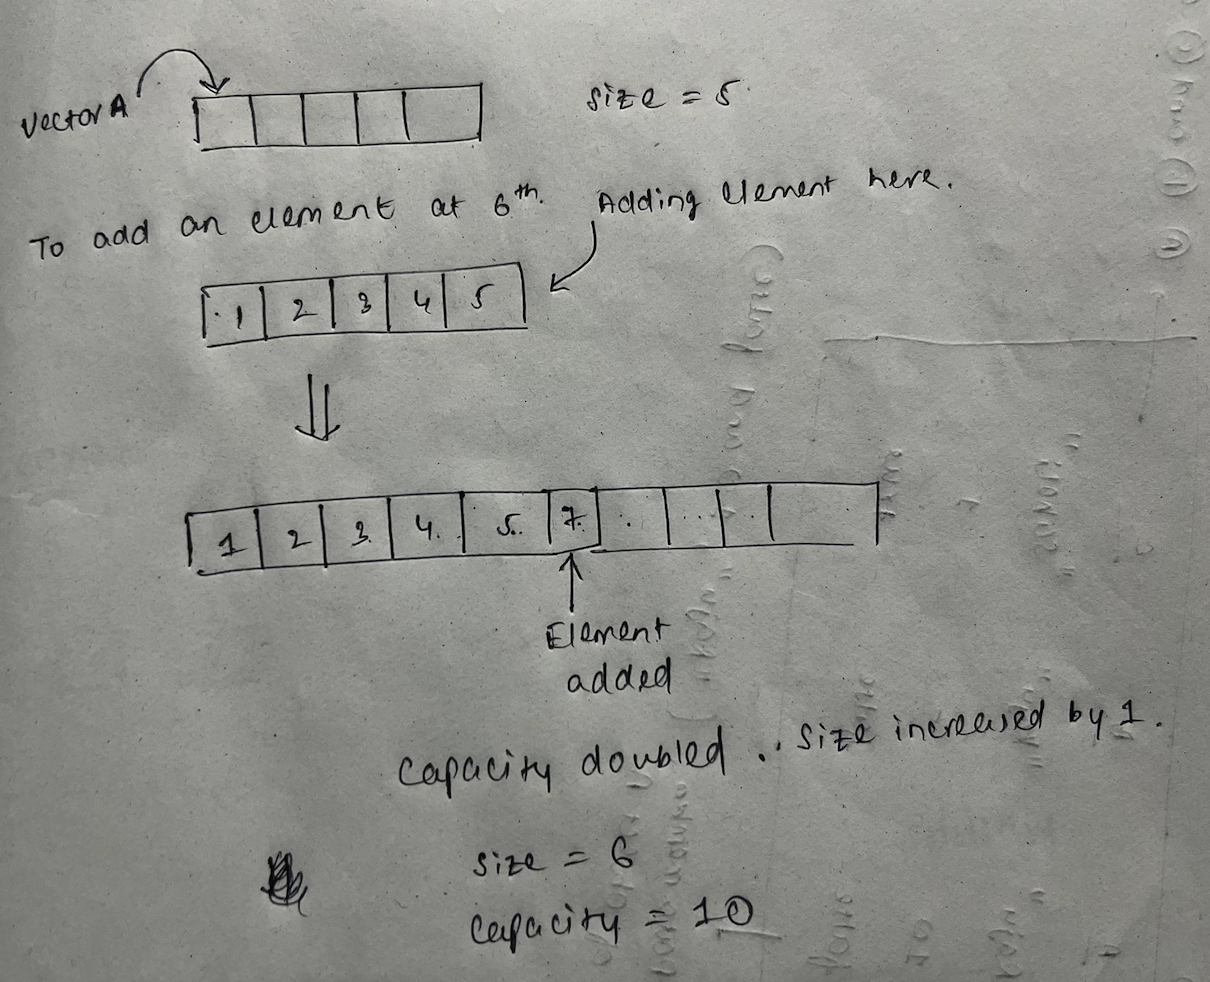 Vector A
size = 5
To add an element at 6th.
Adding element here.
1 2 3 4 5
1 2 3 4. 5.. 7.
Element
added
Capacity doubled . size increased by 1.
size = 6
capacity = 10